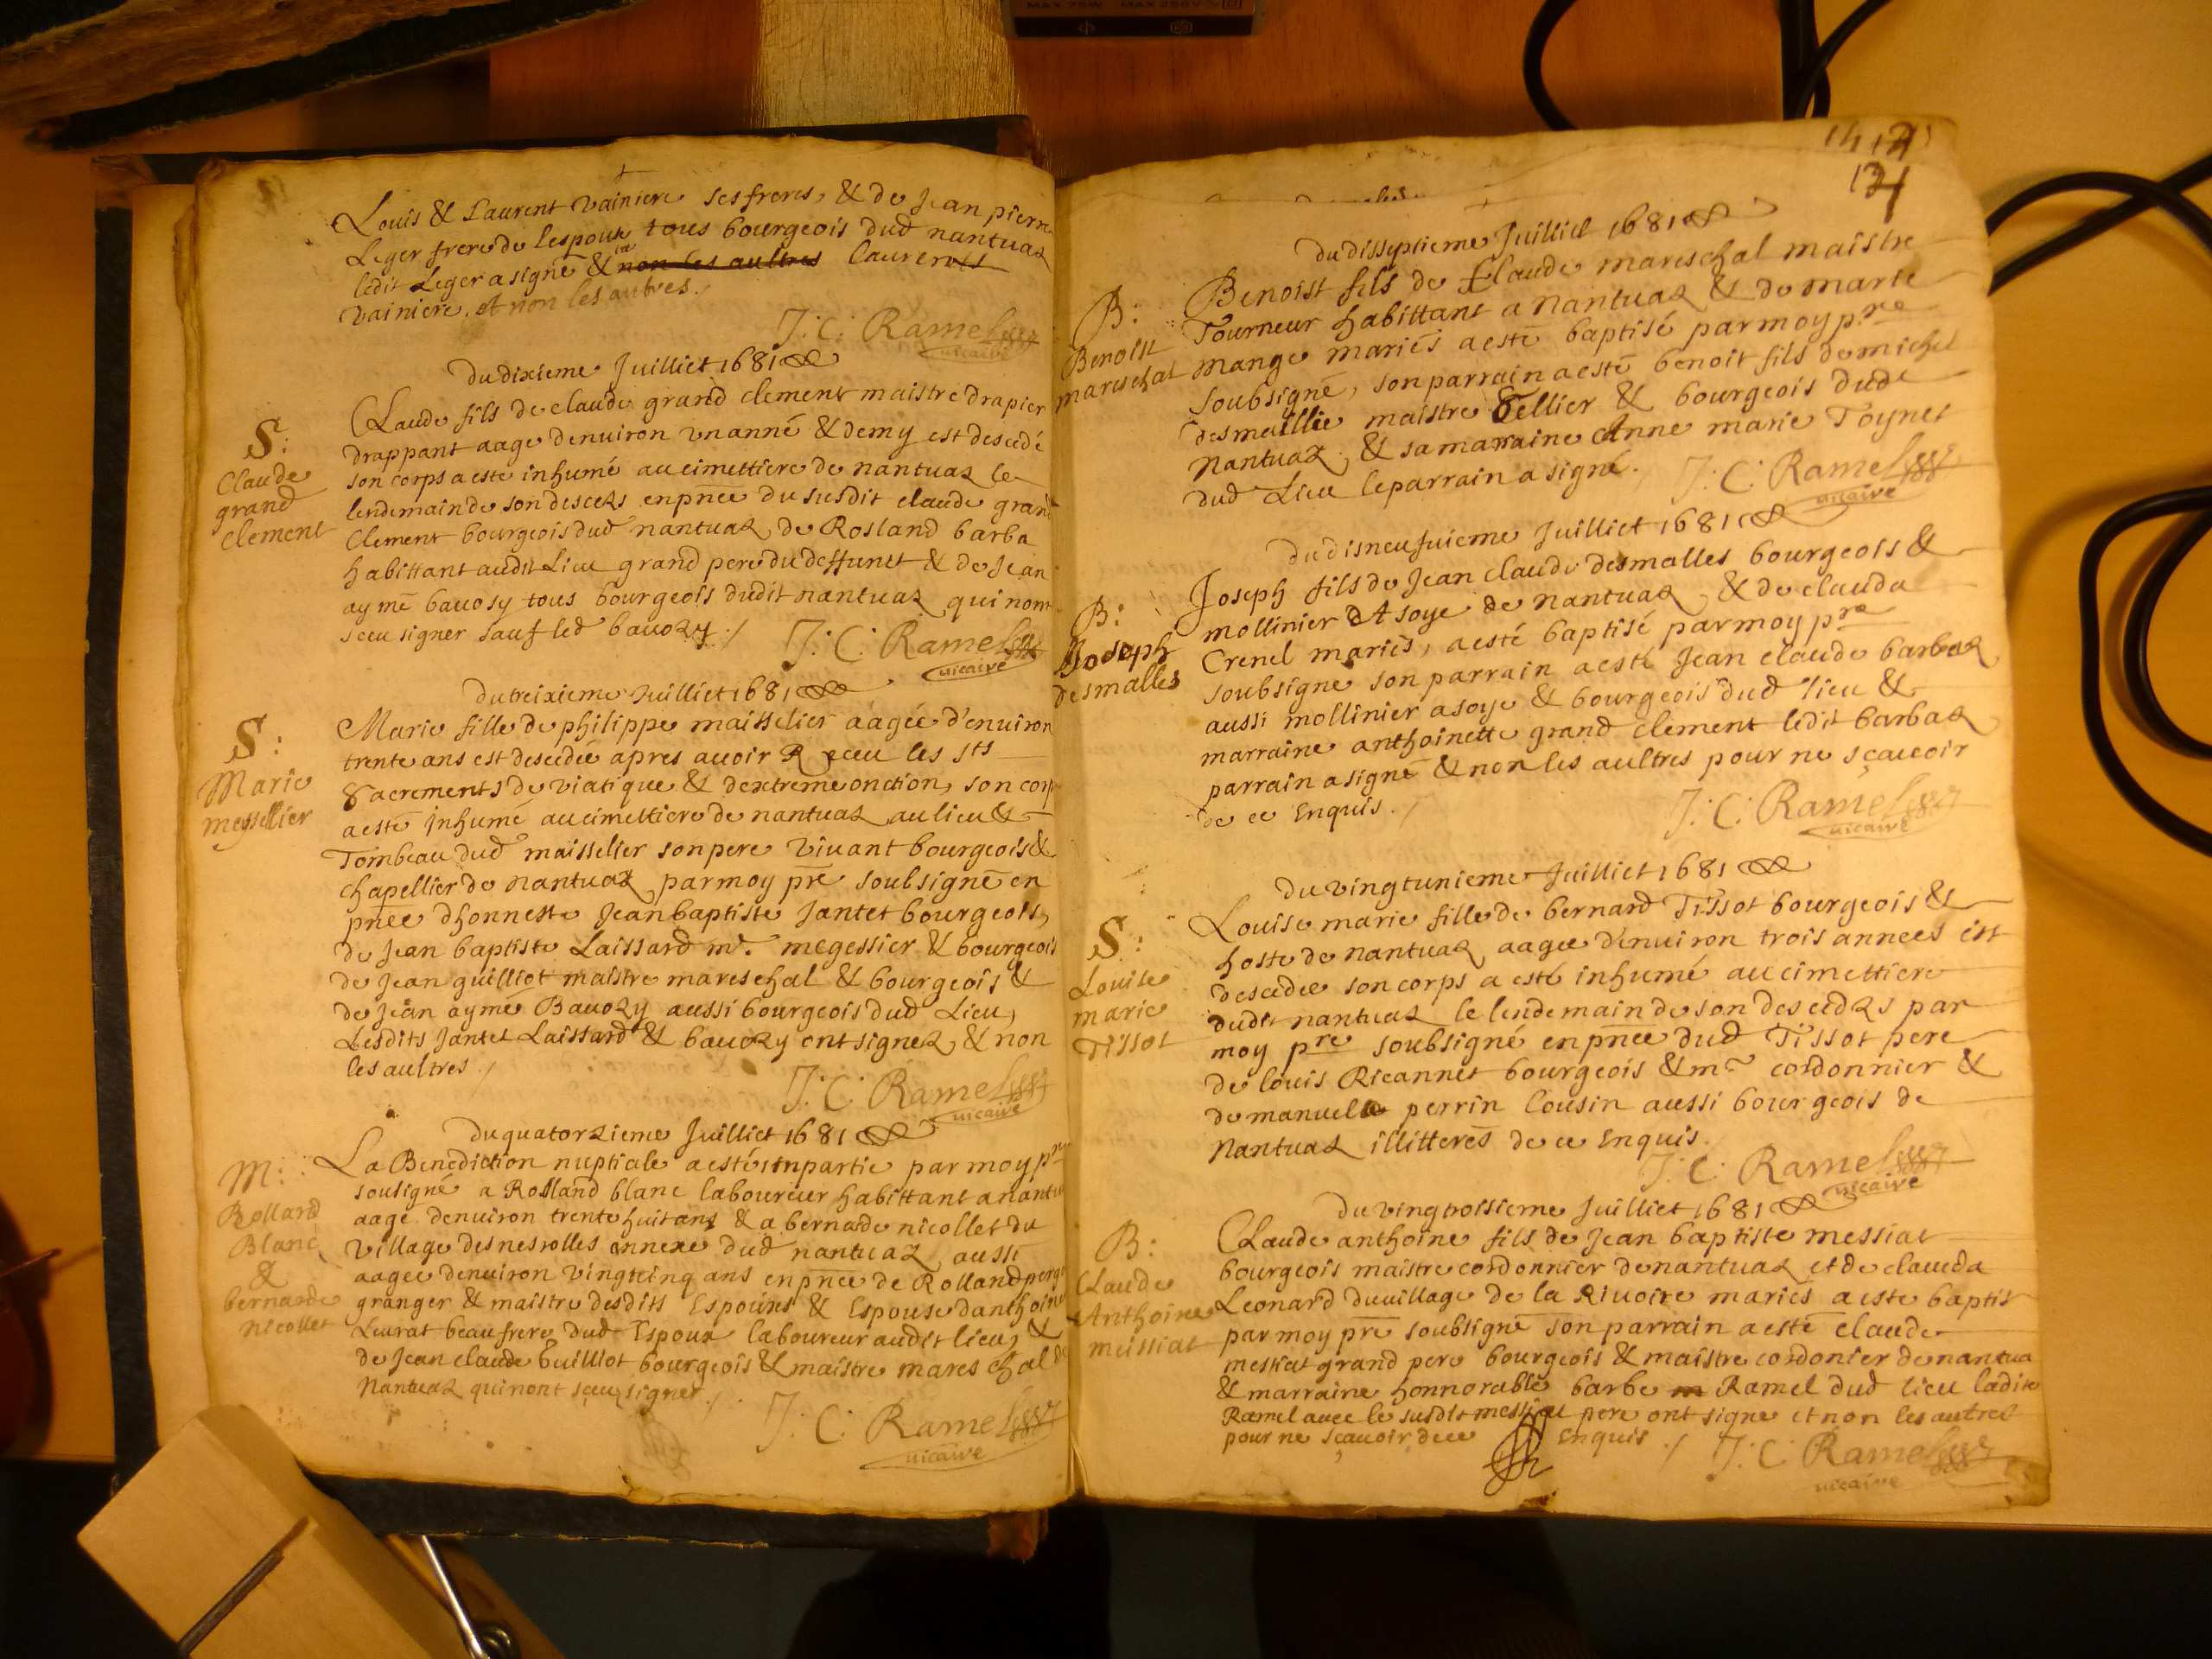 Louis & Laurent Vainiere ses freres, & de Jean pierre
Leger frere de lespoux tous bourgeois dud nantuaz
ledit Leger a signé & non les aultres laurent
vainiere, et non les autres.
J: C: Ramel
vicaire
Du dixieme Juilliet 1681
S:
Claude
grand
clement
Claude fils de claude grand clement maistre drapier
drappant aage denuiron un anné & demy est descedé
son corps a esté inhumé au cimettiere de nantuaz le
lendemain de son descers en pnce du susdit claude grand
Clement bourgeois dud nantuaz, de Rosland barba
habittant audit Lieu grand pere du deffunct & de Jean
aymé bauosy tous bourgeois dudit nantuaz qui nont
sceu signer sauf led bauozy ./
J: C: Ramel
vicaire
Du treixieme Juilliet 1681
S:
Marie
meyssellier
Marie fille de philippe maisselier aagée d'enuiron
trente ans est descedée apres auoir Receu les sts
Sacrements de viatique & dextreme onction, son corp
a esté inhumé au cimettiere de nantuaz au lieu &
Tombeau dud maisselier son pere viuant bourgeois &
chapellier de nantuaz par moy pre soubsigné en
pnce dhonneste Jean baptiste Jantet bourgeois,
de Jean baptiste Laissard mr. megessier & bourgeois
de Jean guilliot maistre mareschal & bourgeois &
de Jean aymé Bauozy aussi bourgeois dud Lieu,
Lesdits Jantet Laissard & bauozy ont signez & non
les aultres ./
J: C: Ramel
vicaire
Du quatorzieme Juilliet 1681
M:
Rolland
Blanc
&
bernarde
nicollet
La Benediction nuptiale a esté inpartie par moy pre
sousigné a Rolland blanc laboureur habittant a nantu
aagé denuiron trente huit ans & a bernarde nicollet du
village des nesrolles annexe dud nantuaz aussi
aagee denuiron vingt cinq ans en pnce de Rolland perge
granger & maistre desdits Espoux & Espouse danthoine
Leurat beau frere dud Espoux laboureur audit lieu, &
de Jean claude Guilliot bourgeois & maistre mareschal de
Nantuaz qui nont sceu signer ./.
J: C: Ramel
vicaire
121
Du disseptieme Juilliet 1681
B:
Benoist
mareschal
Benoist fils de Claude mareschal maistre
Tourneur habittant a nantuaz & de marie
mange mariés a esté baptisé par moy pre
soubsigné, son parrain a esté benoit fils de michel
desmaillie maistre Sellier & bourgeois dud
Nantuaz, & sa marraine Anne marie Toynet
dud Lieu le parrain a signé ./
J: C: Ramel
vicaire
Du disneufuieme Juilliet 1681
B:
Joseph
desmalles
Joseph fils de Jean claude desmalles bourgeois &
mollinier A soye de nantuaz & de clauda
Crenel mariés, a esté baptisé par moy pre
soubsigne son parrain a esté Jean claude barbaz
aussi mollinier a soye & bourgeois dud lieu &
marraine anthoinette grand clement ledit barbaz
parrain a signé & non les aultres pour ne sçauoir
de ce Enquis ./
J: C: Ramel
vicaire
Du vingtunieme Juilliet 1681
S:
Louise
marie
Tissot
Louise marie fille de bernard Tissot bourgeois &
hoste de nantuaz aagee d'enuiron trois annees est
descedee son corps a esté inhumé au cimettiere
dudit nantuaz le lendemain de son descedzs par
moy pre soubsigné en pnce dud Tissot pere
de louis Ricannet bourgeois & mr cordonnier &
de manuel perrin Cousin aussi bourgeois de
Nantuaz illitterés de ce Enquis.
J: C: Ramel
vicaire
Du vingtroisieme Juilliet 1681
B:
Claude
Anthoine
messiat
Claude anthoine fils de Jean baptiste messiat
bourgeois maistre cordonnier de nantuaz et de clauda
Leonard du village de la Riuoire mariés a este baptis
par moy pre soubsigné son parrain a esté claude
messiat grand pere bourgeois & maistre cordonier de nantua
& marraine honnorable barbe Ramel dud lieu ladite
Ramel auec le susdit messiat pere ont signe et non les autres
pour ne sçauoir de ce Enquis ./
J: C: Ramel
vicaire